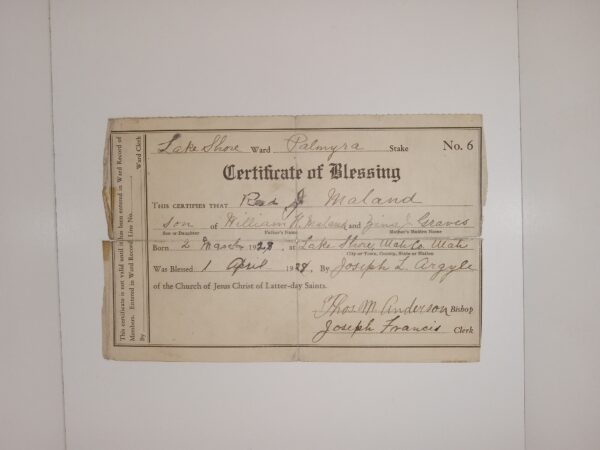 Lake Shore Ward Palmyra Stake No. 6
Certificate of Blessing
THIS CERTIFIES THAT J Maland
son of William K. Maland and Zina J. Graves
Son or Daughter Father's Name Mother's Maiden Name
Born 2 March 1928, at Lake Shore, Utah Co. Utah
City or Town, County, State or Nation
Was Blessed 1 April 1928, By Joseph L. Argyle
of the Church of Jesus Christ of Latter-day Saints.
Thos. M. Anderson Bishop
Joseph Francis Clerk
This certificate is not valid until it has been entered in Ward Record of
Members. Entered in Ward Record Line No.
By Ward Clerk